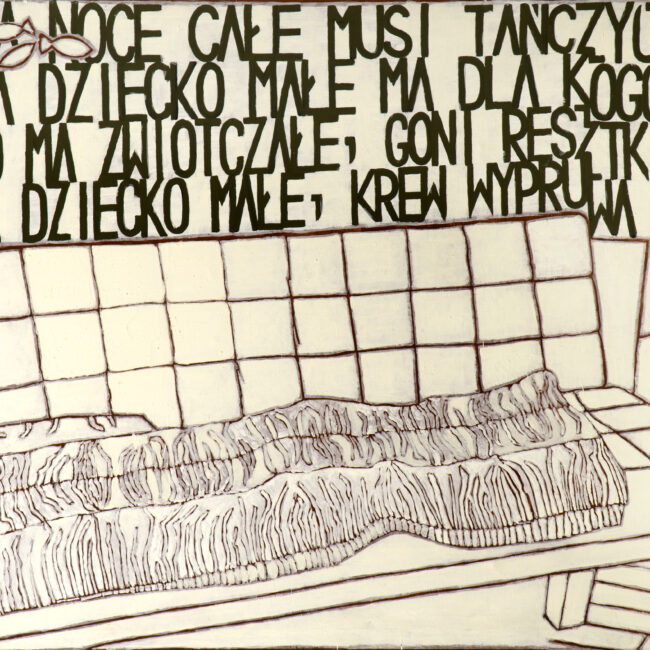 A NOCE CAŁE MUSI TANCZYC
A DZIECKO MAŁE MA DLA KOGO
O MA ZWIOTCZAŁE, GONI RESZTK
DZIECKO MAŁE, KREW WYPRUWA